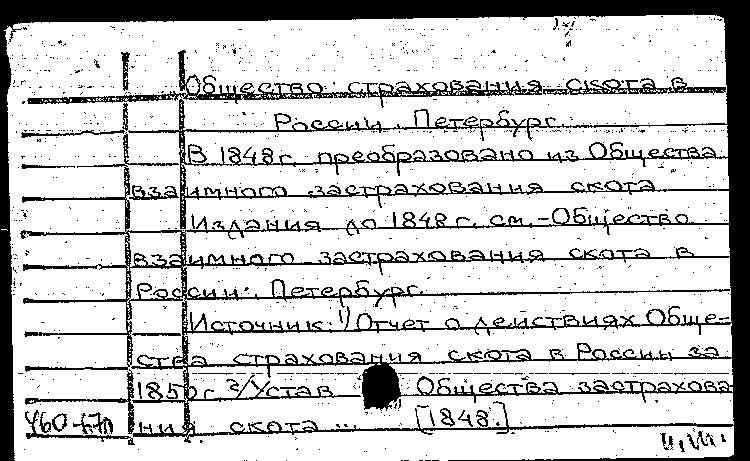 Общество страхования скота в
России. Петербург.
В 1848 г. преобразовано из Общества
взаимного застрахования скота
Издания до 1848 г. см.-Общество
взаимного застрахования скота в
России. Петербург.
Источник: 1) Отчет о действиях Обще-
ства страхования скота в России за
1850 г. 2) Устав Общества застрахова
ния скота ... [1848.]